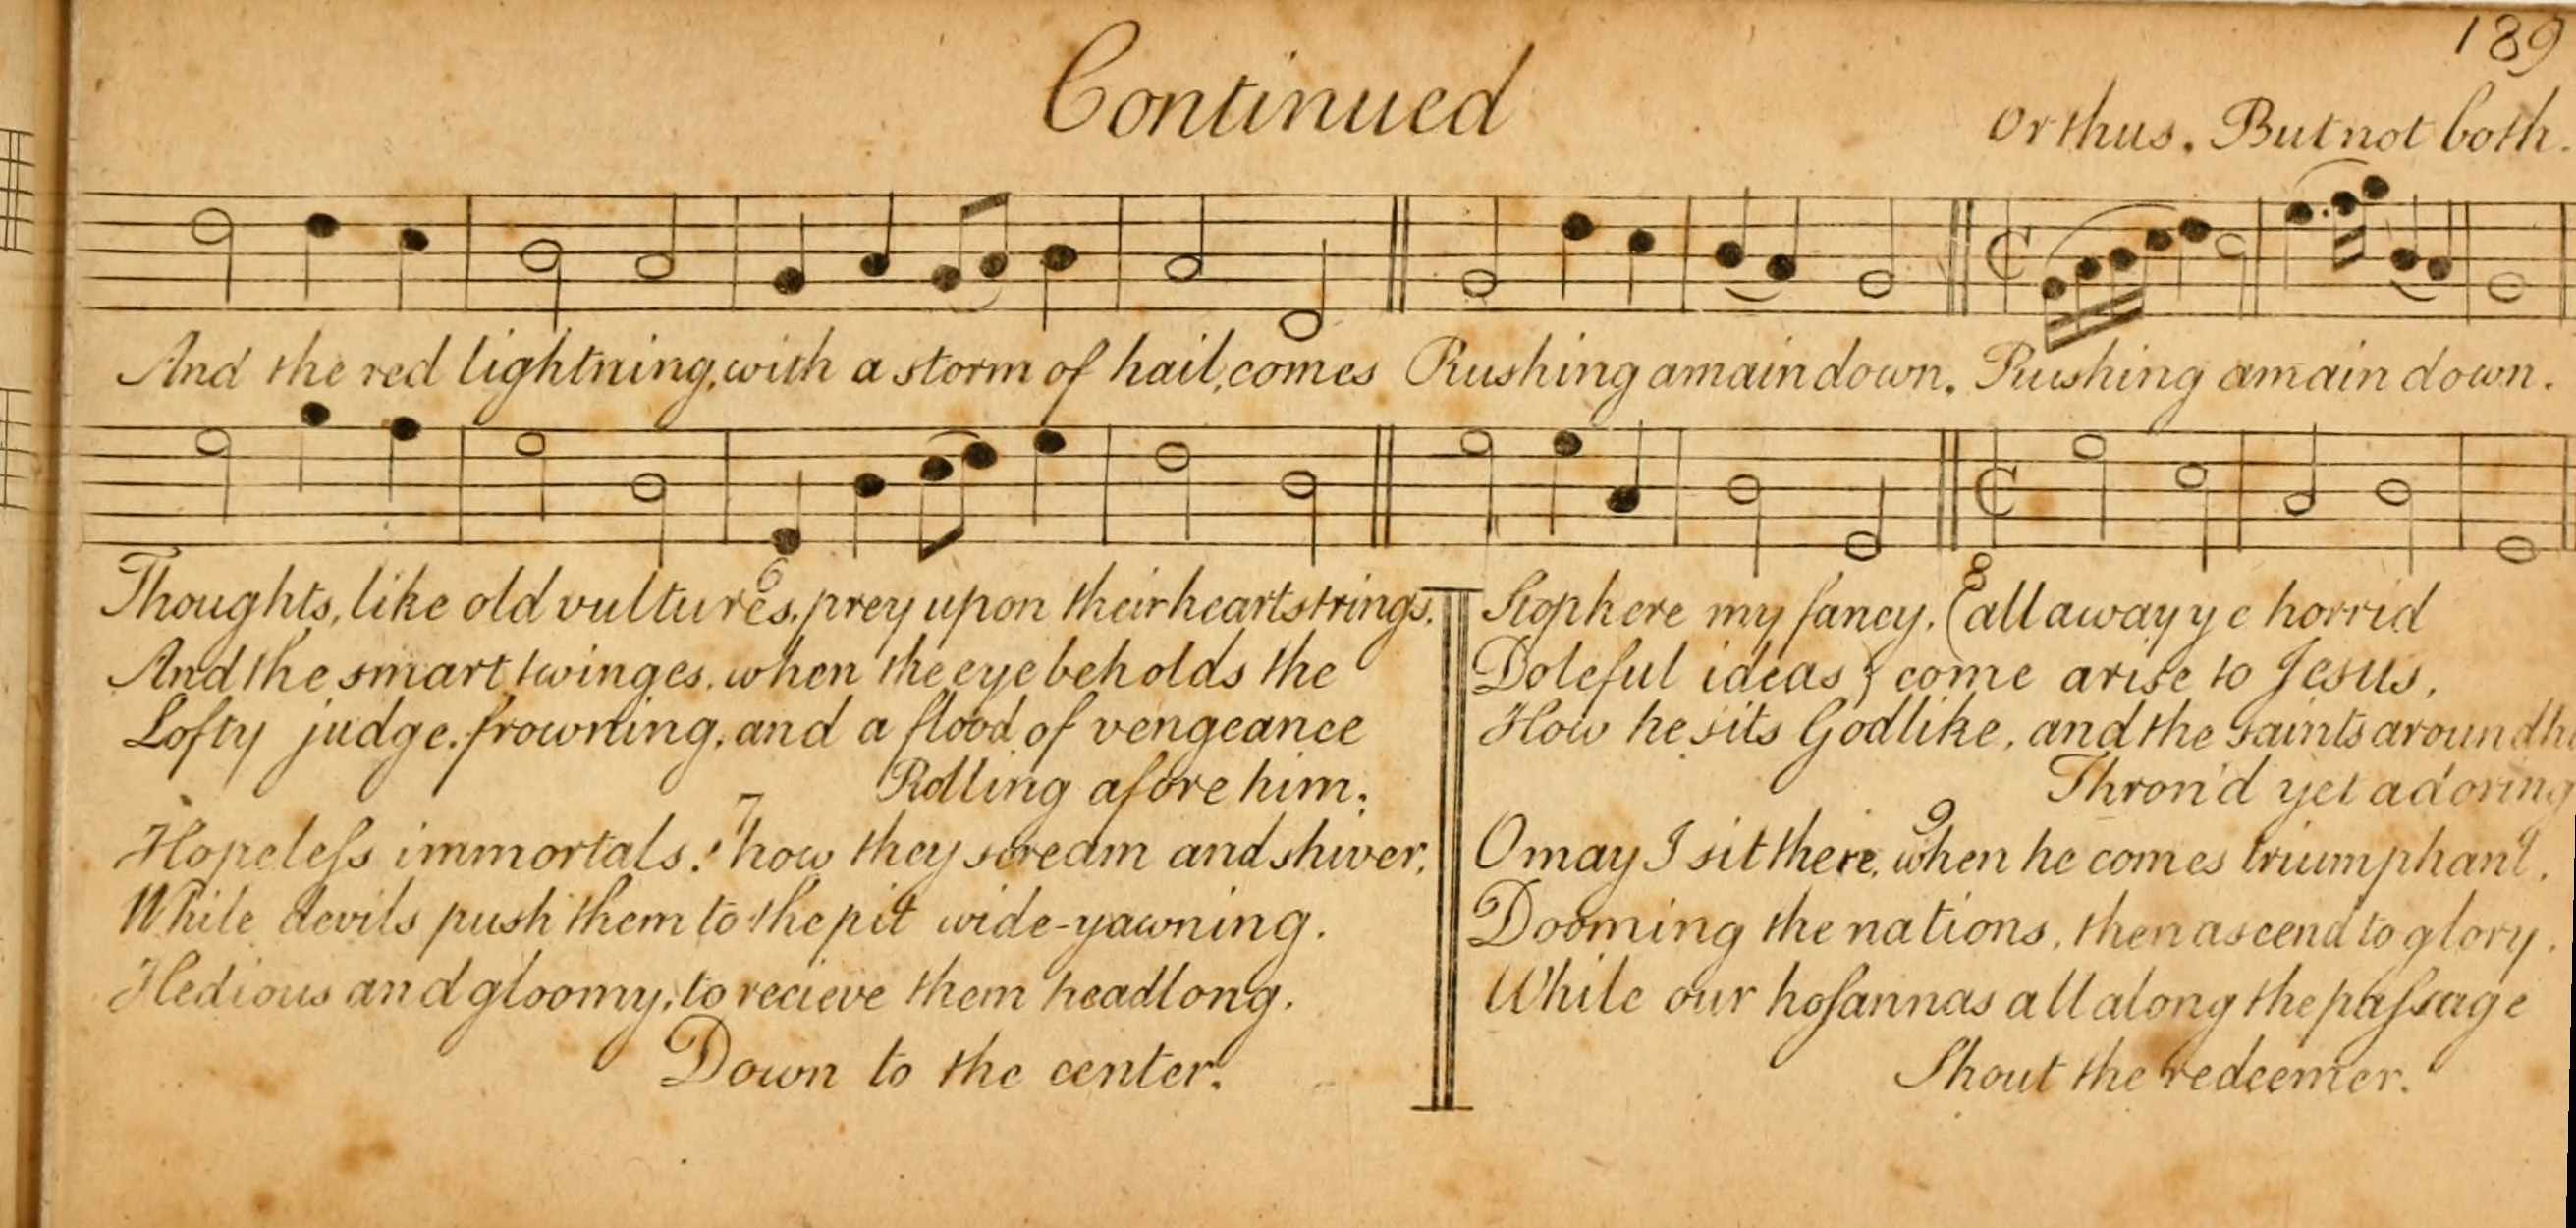 189
Continued
Or thus. But not both.
And the red lightning, with a storm of hail, comes Rushing amain down. Rushing amain down.
6
Thoughts, like old vultures, prey upon their heartstrings,
And the smart twinges, when the eye beholds the
Lofty judge, frowning, and a flood of vengeance
Rolling afore him.
7
Hopeleſs immortals! how they scream and shiver,
While devils push them to the pit wide-yawning.
Hedious and gloomy, to recieve them headlong.
Down to the center.
8
Stop here my fancy. (all away ye horrid
Doleful ideas; come arise to Jesus,
How he sits Godlike, and the saints around
Thron'd yet adoring
9
O may I sit there, when he comes triumphant,
Dooming the nations, then ascend to glory.
While our hoſannas all along the paſsage
Shout the redeemer.